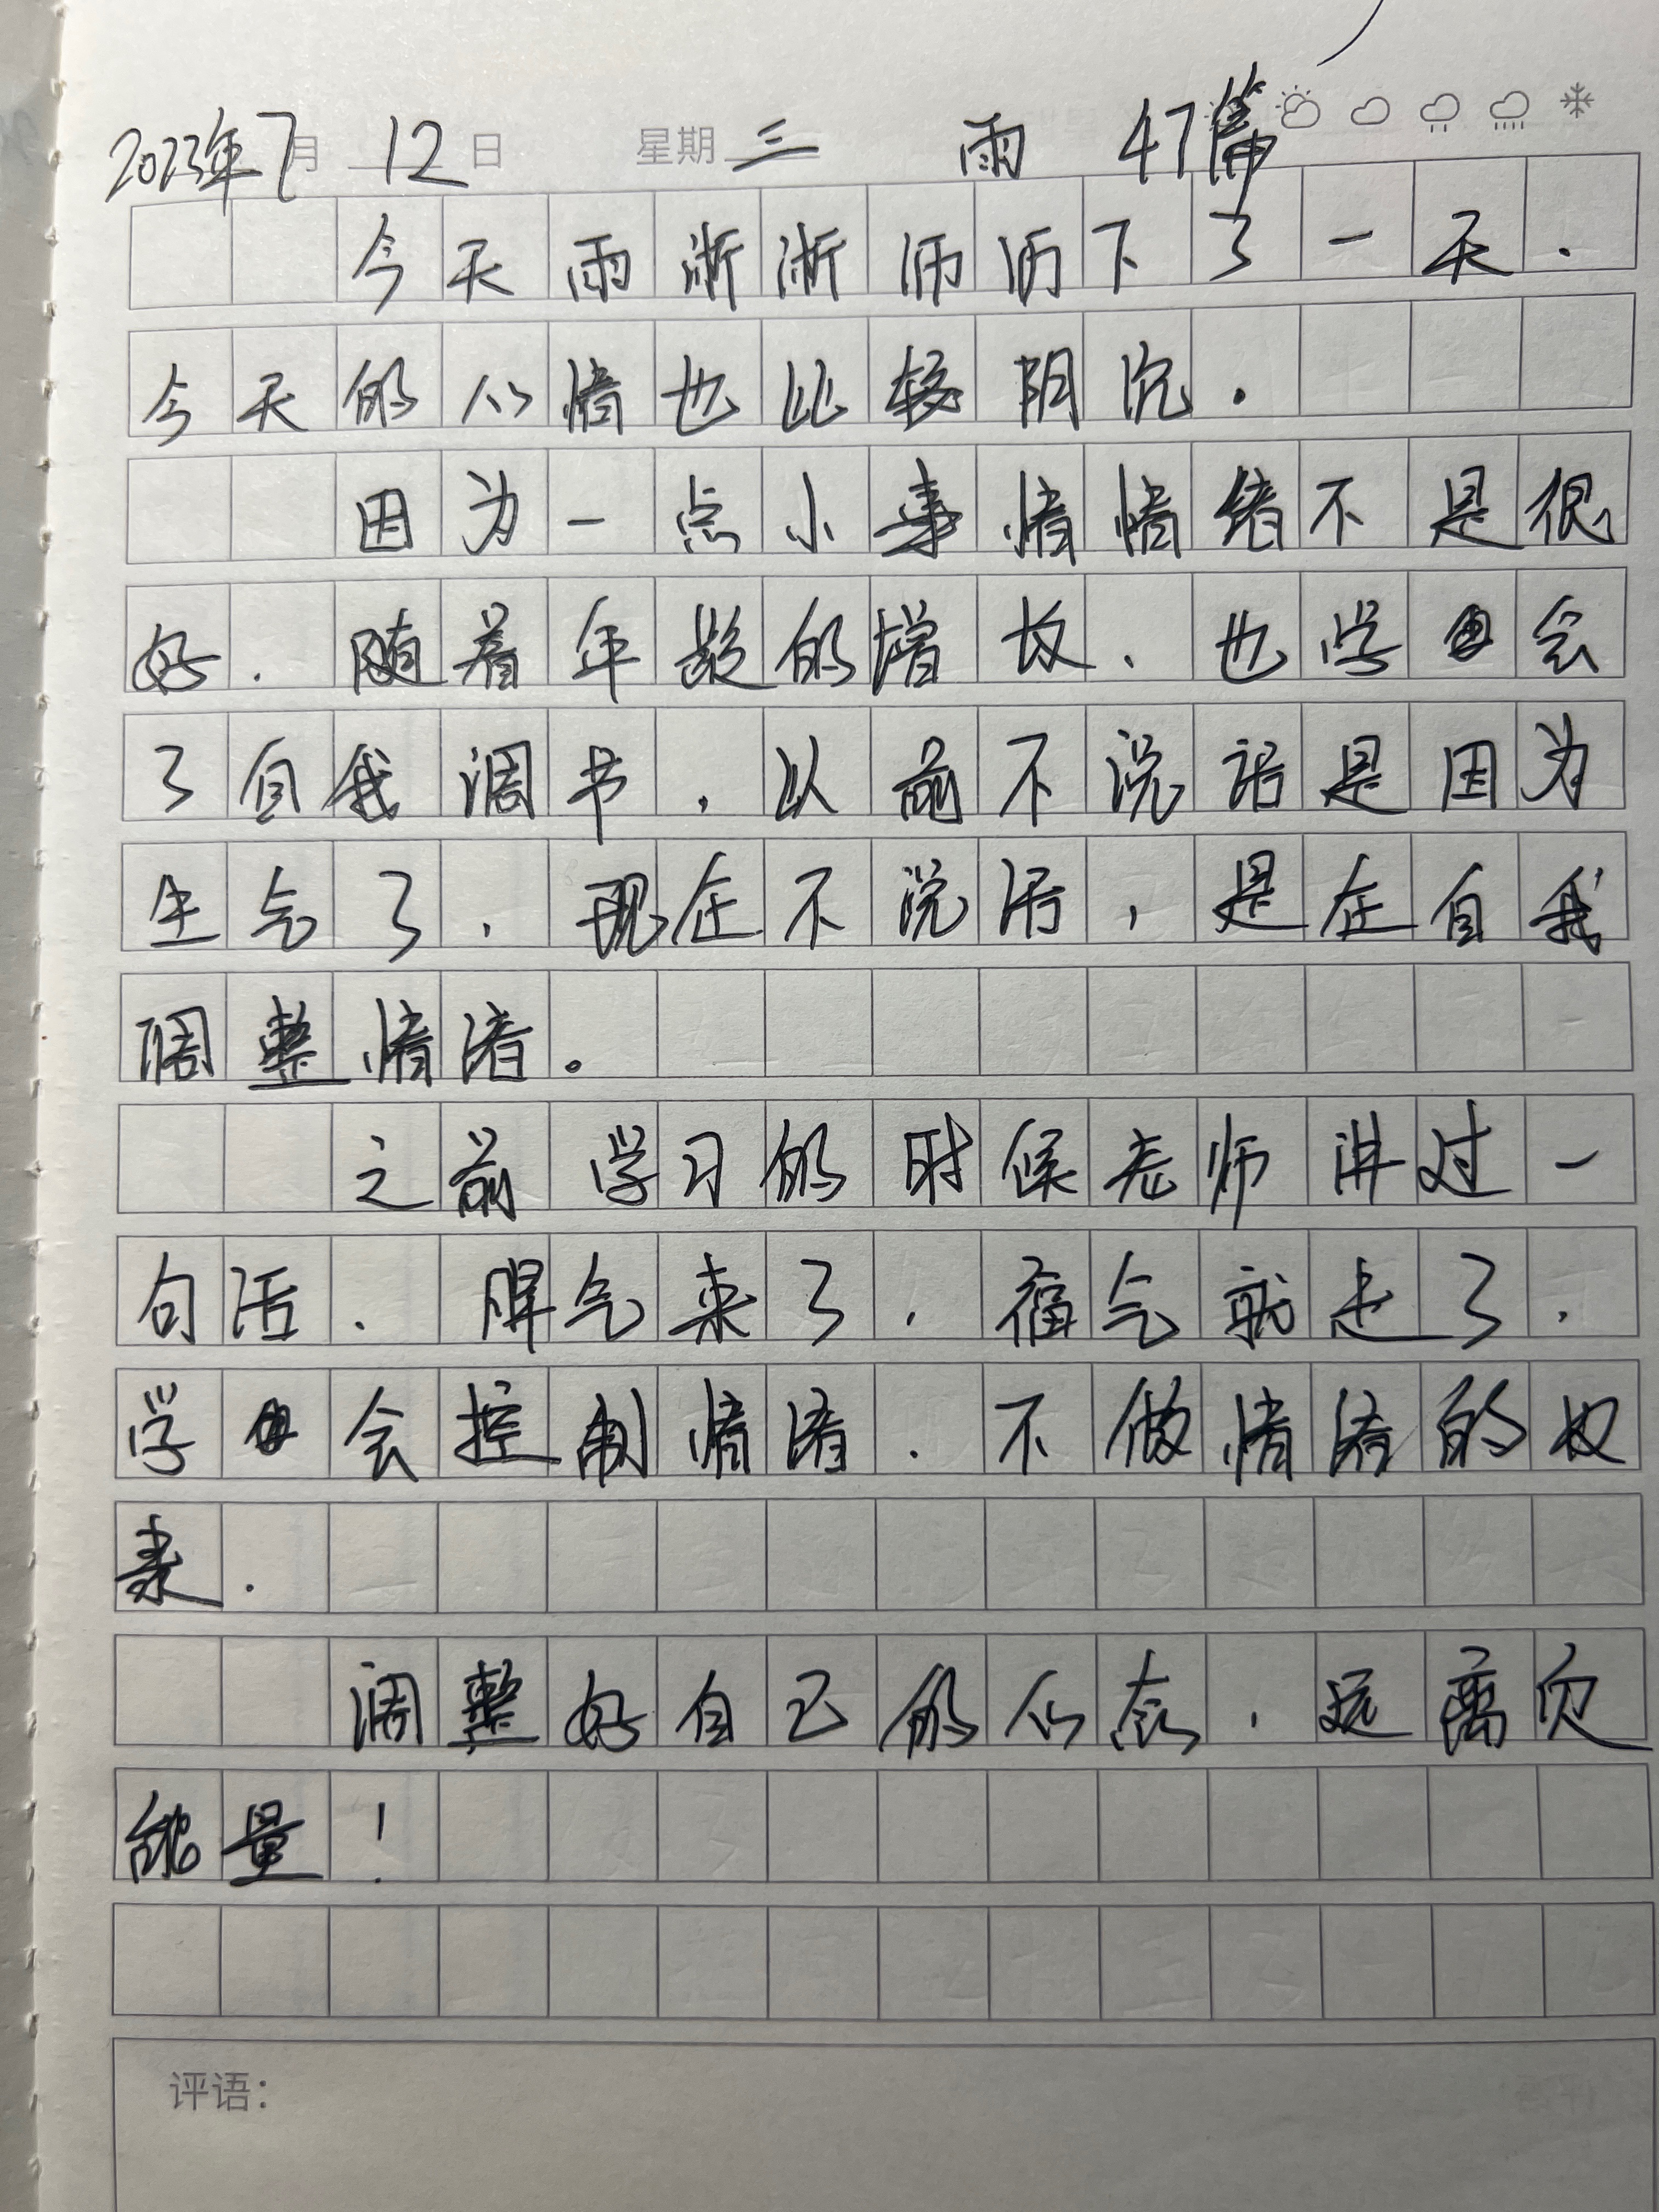 2023年7月 12日 星期三 雨 47篇
今天雨淅淅沥沥下了一天.
今天的心情也比较阴沉.
因为一点小事情情绪不是很
好.随着年龄的增长、也学会
了自我调节,以前不说话是因为
生气了,现在不说话,是在自我
调整情绪。
之前学习的时候老师讲过一
句话.脾气来了,福气就走了,
学会控制情绪.不做情绪的奴
隶.
调整好自己的心态,远离负
能量!
评语: